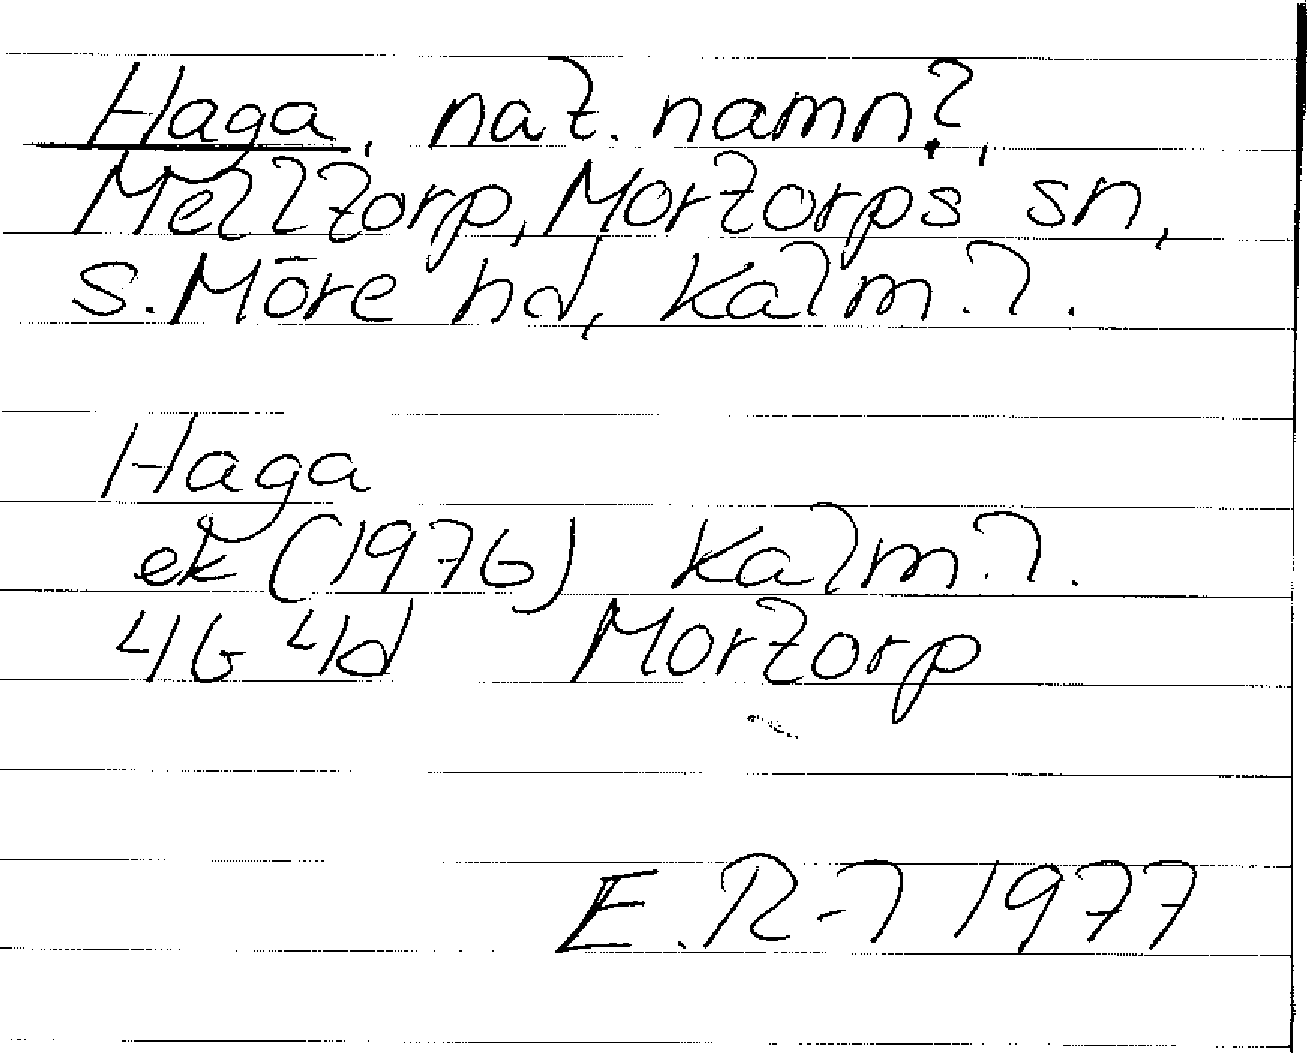 Haga, nat. namn?,
Melltorp, Mortorps sn,
S. Möre hd, Kalm. l.
Haga
ek (1976) Kalm. l.
4G 4d Mortorp
E. R-l 1977